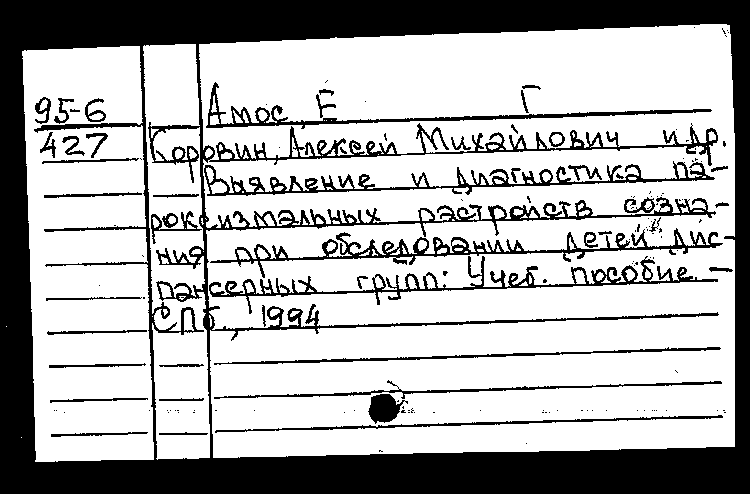 95-6 Амос, Е Г
427 Коровин, Алексей Михайлович и др.
Выявление и диагностика па-
роксизмальных растройств созна-
ния при обследовании детей дис-
пансерных групп: Учеб. пособие. –
СПб., 1994